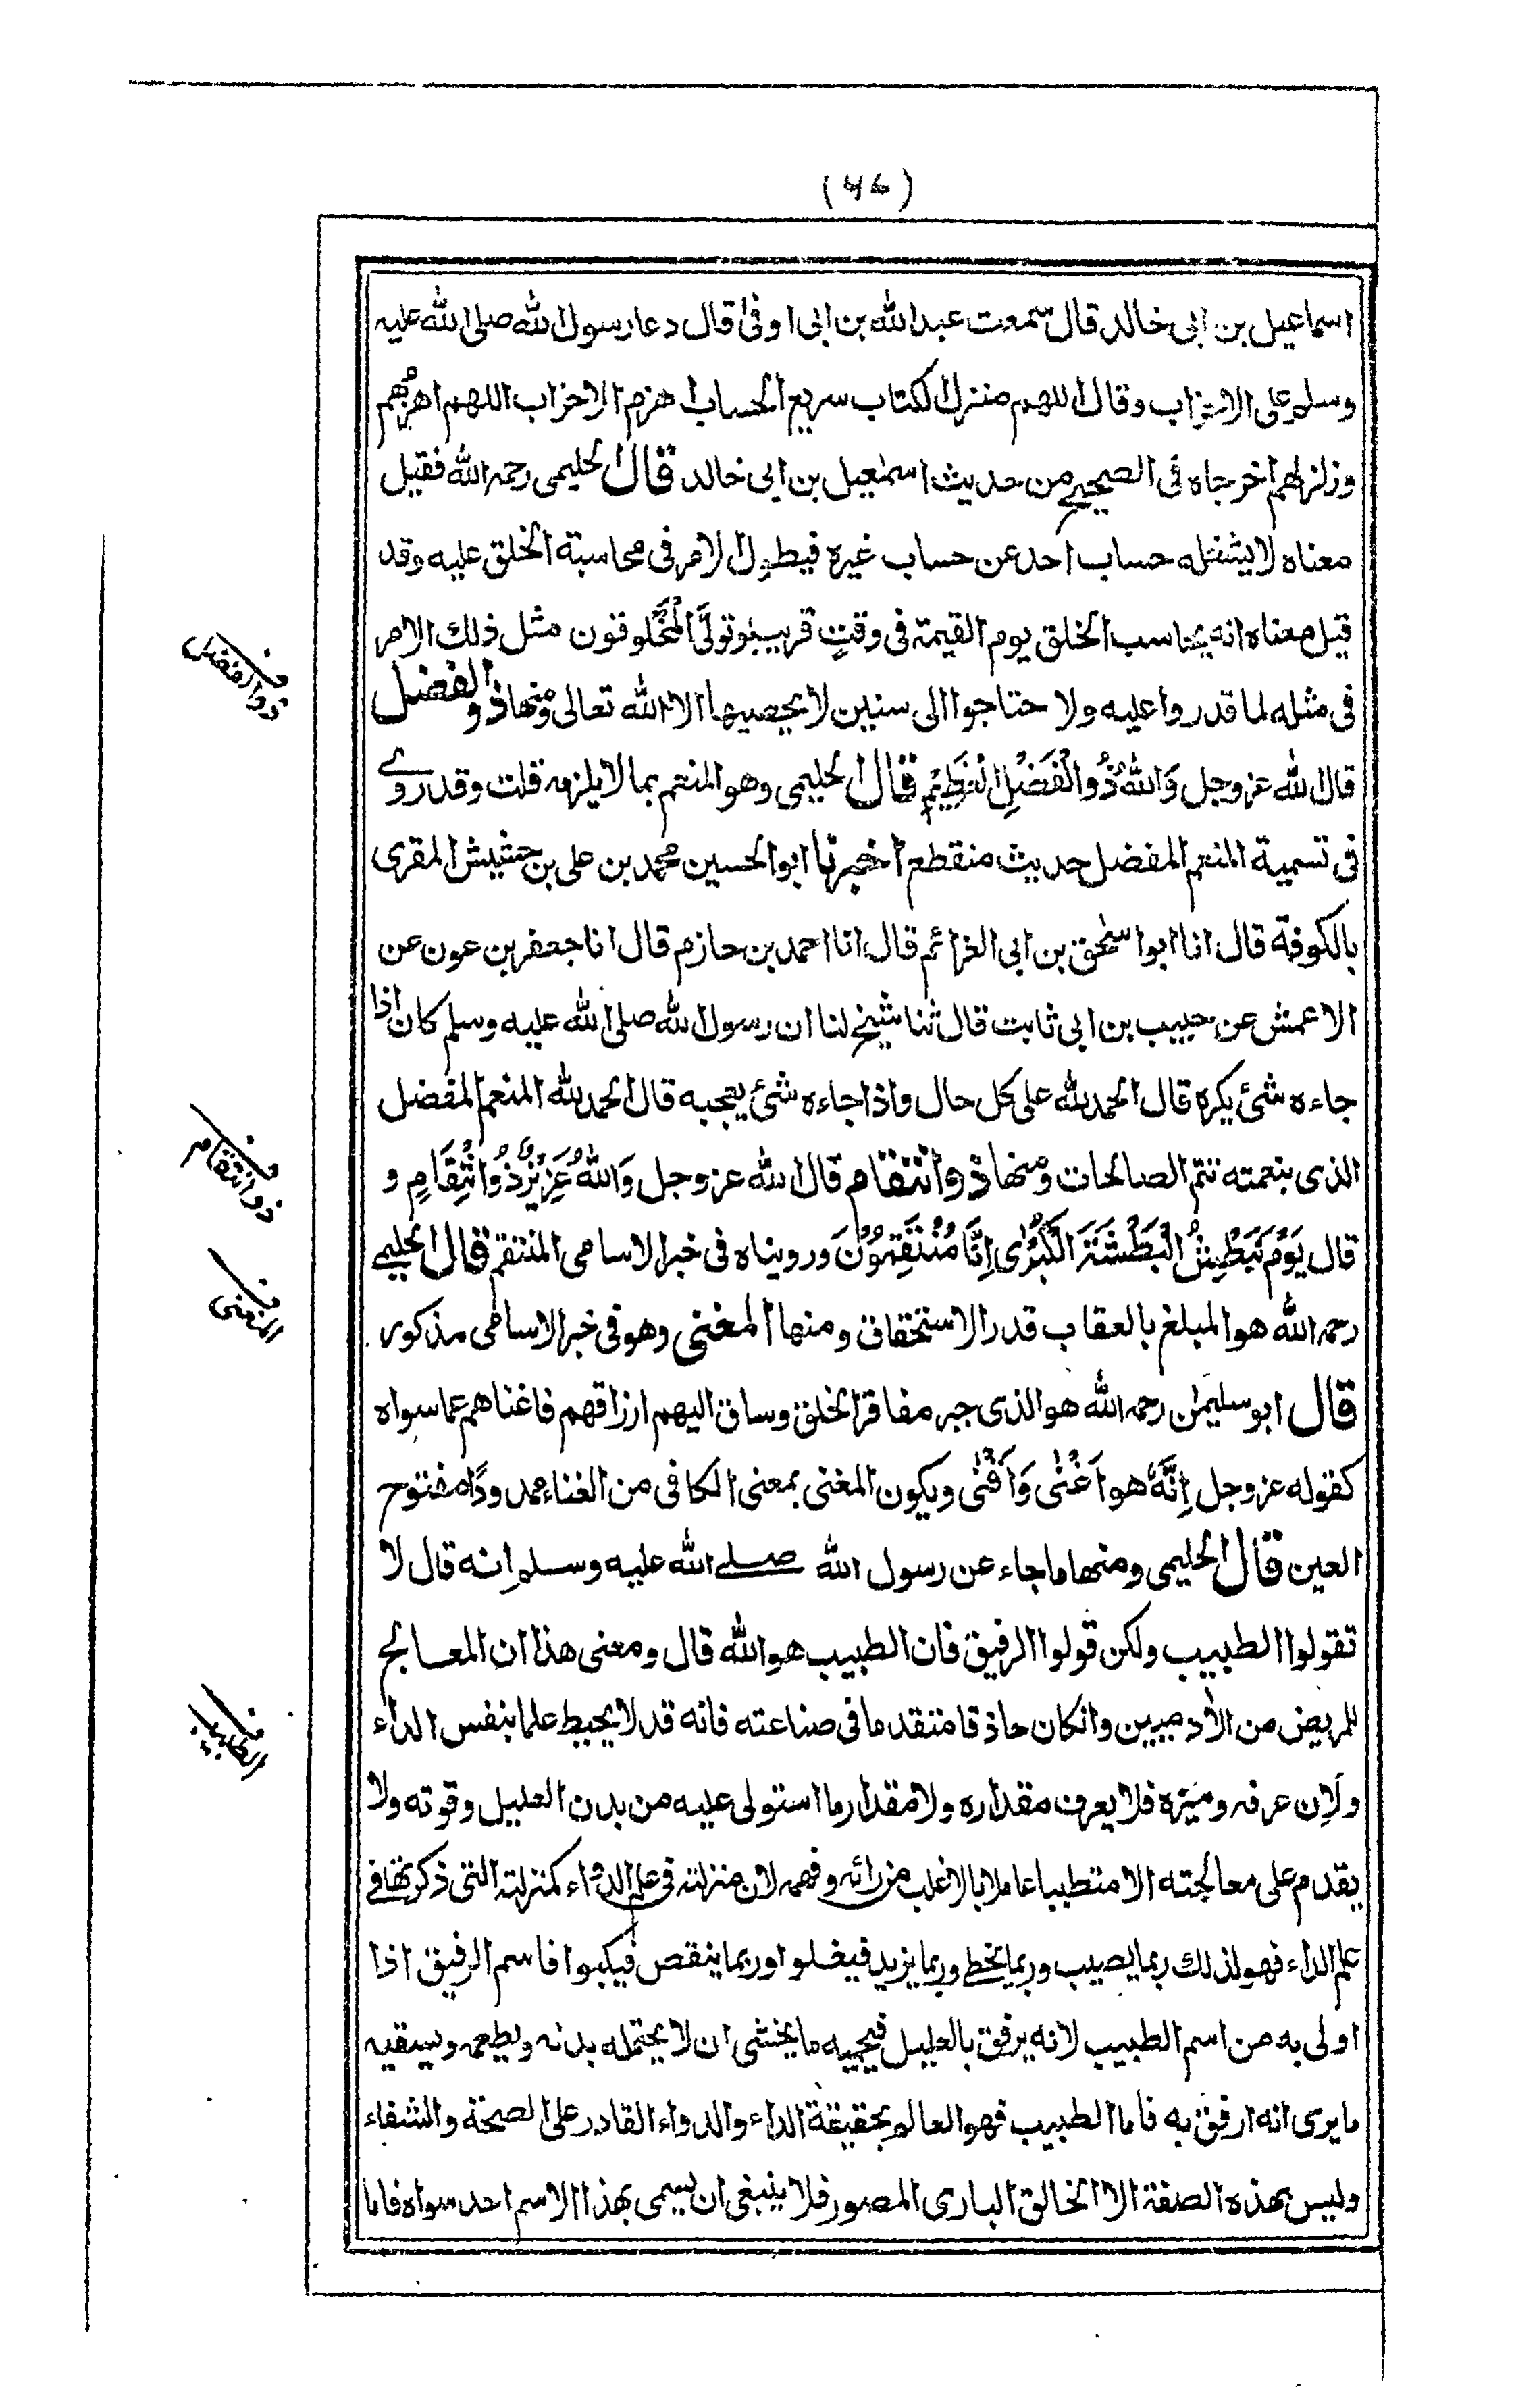 (۴۶)
اسماعيل بن ابى خالد قال سمعت عبدالله بن ابى اوفى قال دعا رسول الله صلى الله عليه
وسلم على الاحزاب وقال اللهم منزل الكتاب سريع الحساب اهزم الاحزاب اللهم اهزمهم
وزلزلهم اخرجاه فى الصحيح من حديث اسمٰعيل بن ابى خالد قال الحليمى رحمه الله فقيل
معناه لا يشغله حساب احد عن حساب غيره فيطول الامر فى محاسبة الخلق عليه وقد
قيل معناه انه يحاسب الخلق يوم القيمة فى وقتٍ قريب لو تولَّى المخلوقون مثل ذلك الامر
فى مثله لما قدروا عليه ولا حتاجوا الى سنين لا يحصيها الا الله تعالى ومنها ذو الفضل
ذوالفضل
قال الله عز وجل وَاللهُ ذُو الْفَضْلِ الْعَظِيْمِ قال الحليمى وهو المنعم بما لا يلزمه قلت وقد روى
فى تسمية المنعم المفضل حديث منقطع اخبرنا ابو الحسين محمد بن على بن خشيش المقرى
بالكوفة قال انا ابو اسحٰق بن ابى العزائم قال انا احمد بن حازم قال انا جعفر بن عون عن
الاعمش عن حبيب بن ابى ثابت قال ثنا شيخ لنا ان رسول الله صلى الله عليه وسلم كان اذا
جاءه شئ يكره قال الحمد لله على كل حال واذا جاءه شئ يعجبه قال الحمد لله المنعم المفضل
الذى بنعمته تتم الصالحات ومنها ذو انتقام قال الله عز وجل وَاللهُ عَزِيْزٌ ذُو انْتِقَامٍ و
ذوانتقام
قال يَوْمَ نَبْطِشُ الْبَطْشَةَ الْكُبْرٰى اِنَّا مُنْتَقِمُوْنَ ورويناه فى خبر الاسامى المنتقم قال الحليمى
رحمه الله هو المبلغ بالعقاب قدر الاستحقاق ومنها المغنى وهو فى خبر الاسامى مذكور
المغنى
قال ابو سليمٰن رحمه الله هو الذى جبر مفاقر الخلق وساق اليهم ارزاقهم فاغناهم عما سواه
كقوله عز وجل اِنَّهٗ هو اَغْنٰى وَاَقْنٰى ويكون المغنى بمعنى الكافى من الغناء ممدودًا مفتوح
العين قال الحليمى ومنها ما جاء عن رسول الله صلى الله عليه وسلم انه قال لا
تقولوا الطبيب ولكن قولوا الرفيق فان الطبيب هو الله قال ومعنى هذا ان المعالج
للمريض من الاٰدميين وان كان حاذقا متقدما فى صناعته فانه قد لا يحيط علما بنفس الداء
الطبيب
ولان عرفه وميزه فلا يعرف مقداره ولا مقدار ما استولى عليه من بدن العليل وقوته ولا
يقدم على معالجته الا متطببا عاملا بالاغلب من رائه وفهمه لان منزلته فى علم الدواء كمنزلته التى ذكرتها فى
علم الداء فهو لذلك ربما يصيب وربما يخطى وربما يزيد فيغلو اوربما ينقص فيكبوا فاسم الرفيق اذا
اولى به من اسم الطبيب لانه يرفق بالعليل فيحميه ما يخشى ان لا يحتمله بدنه ويطعمه ويسقيه
ما يرى انه ارفق به فاما الطبيب فهو العالم بحقيقة الداء والدواء القادر على الصحة والشفاء
وليس بهذه الصفة الا الخالق البارى المصور فلا ينبغى ان يسمى بهذا الاسم احد سواه فاما